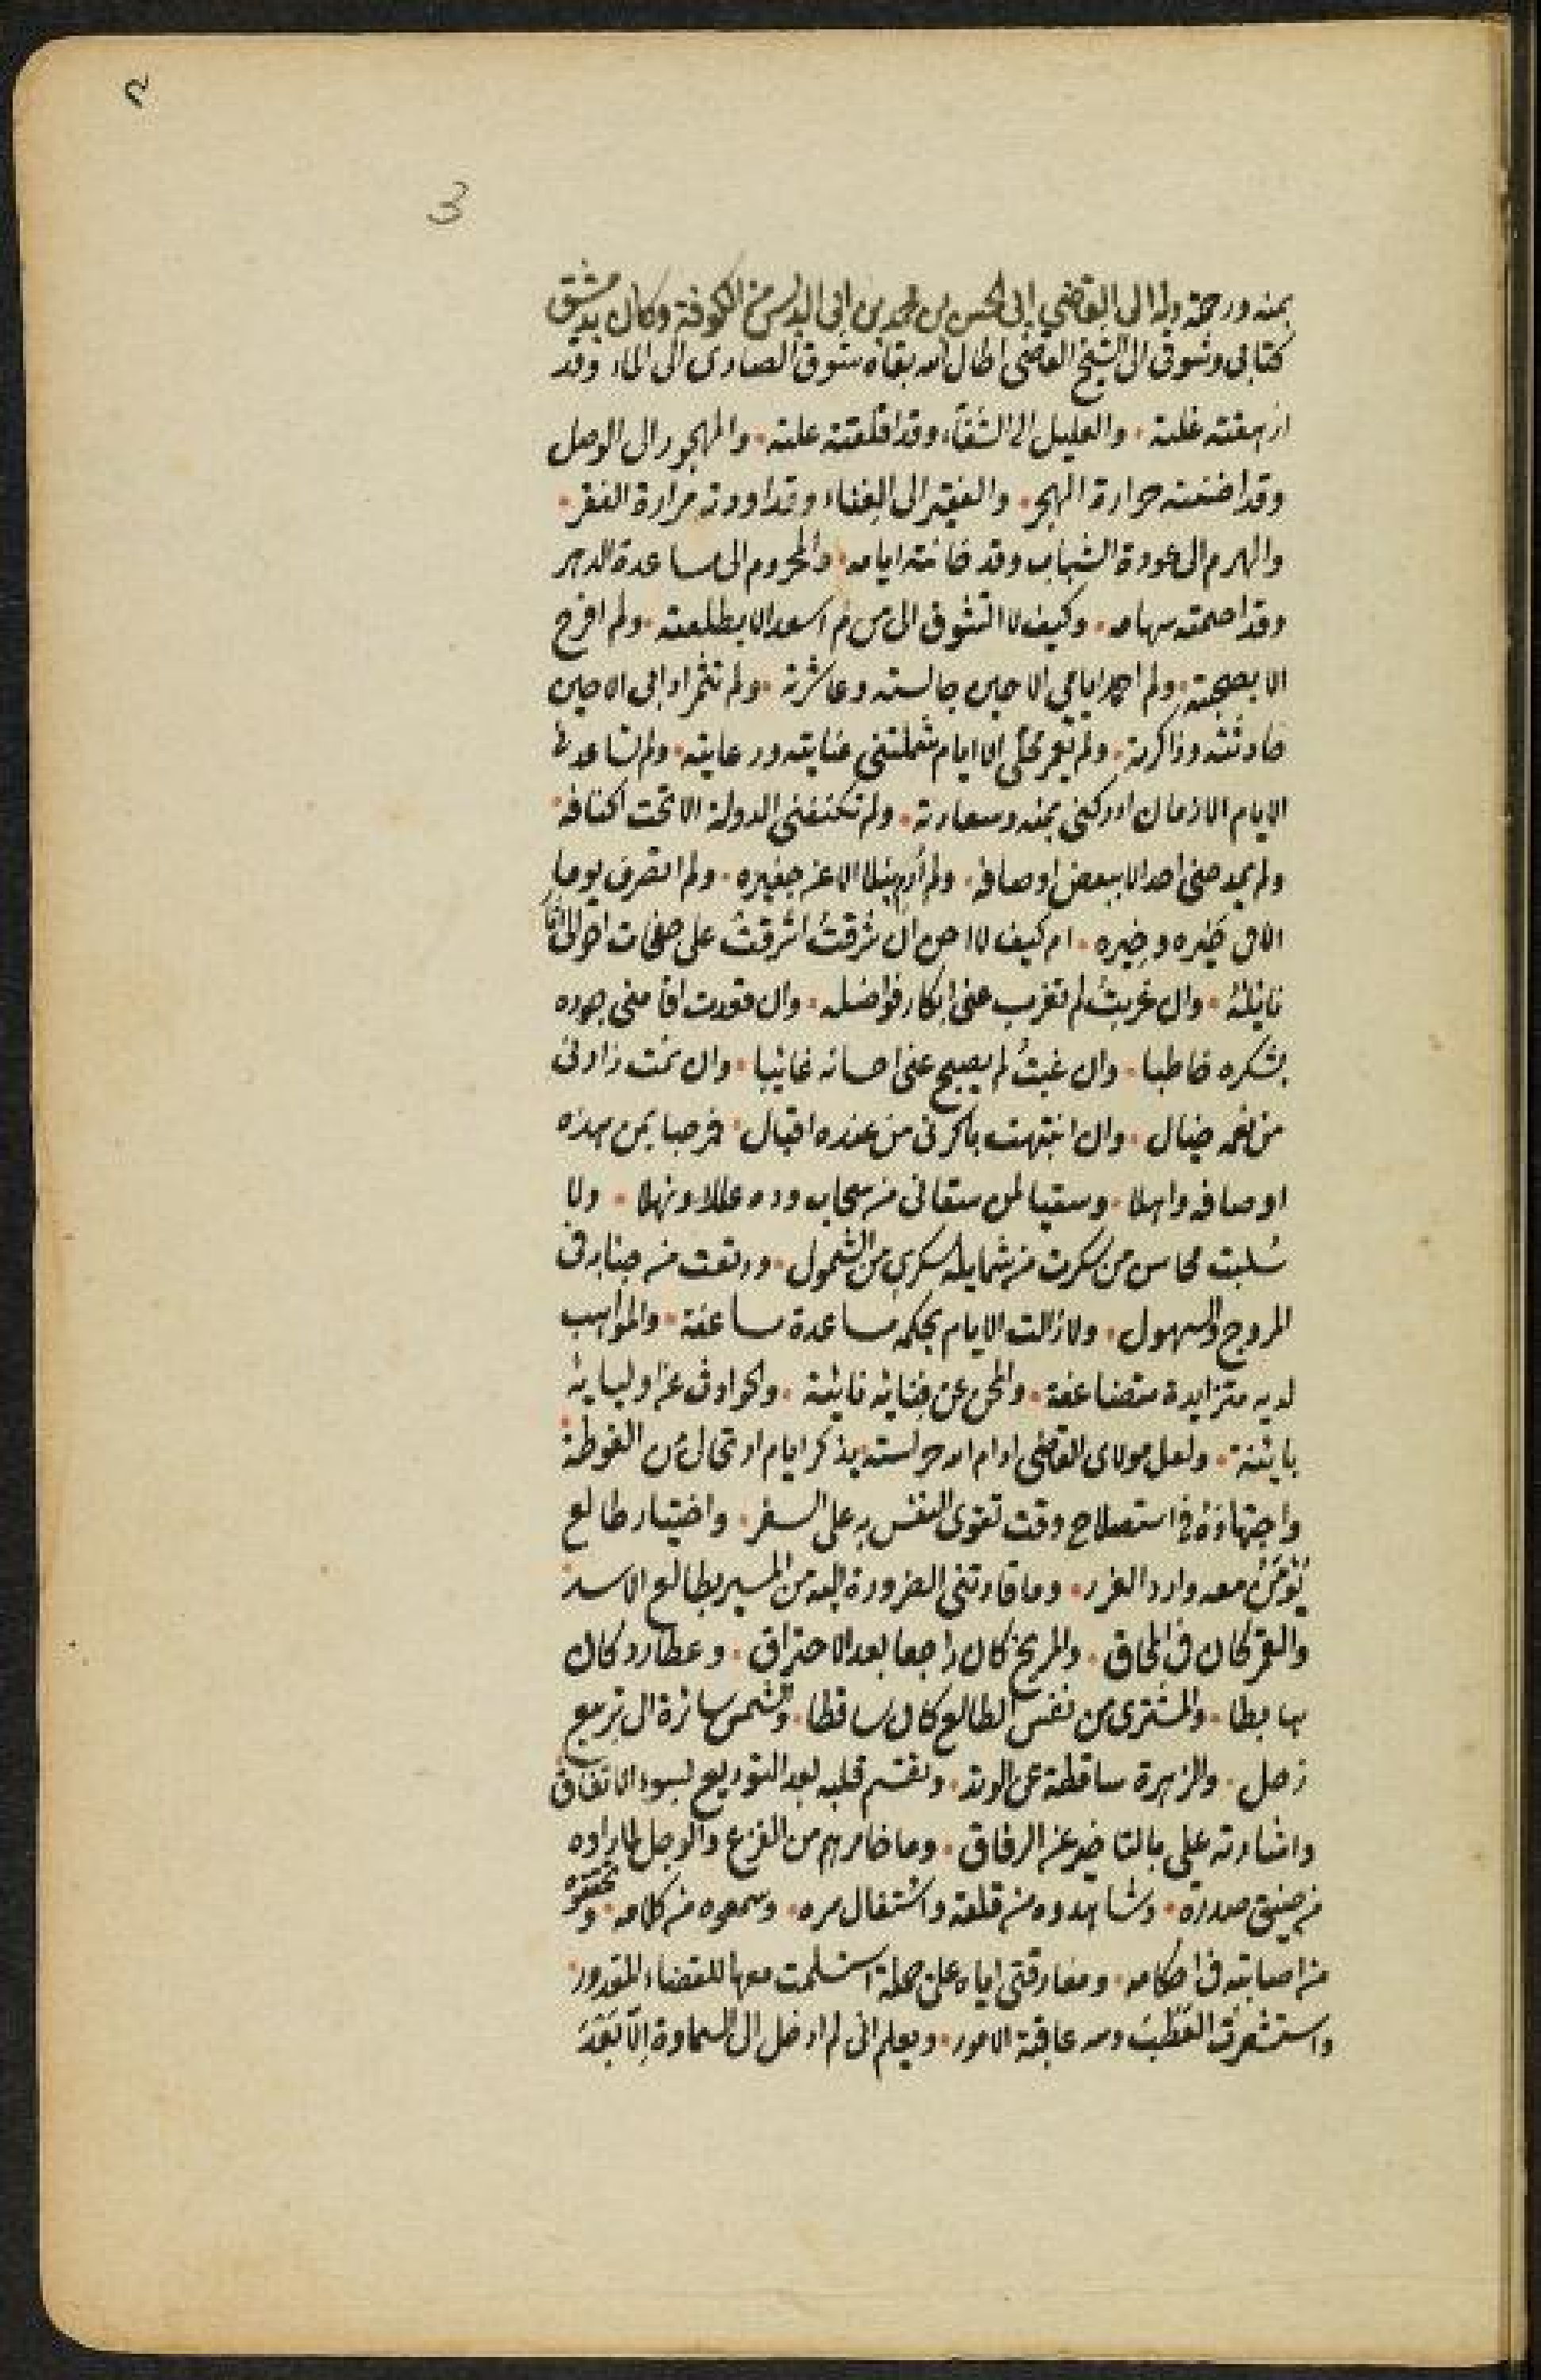 ٣
3
بمنه ورحمته وله الى القاضي ابى الحسن بن محمد بن ابى من الكوفة وكان بدمشق
كتابى وشوقى الى الشيخ القاضى اطال الله بقاه شوق الصادى الى الماء وقد
ازهقته غلته • والعليل الى الشفاء وقد اقلقته علته • والمهجور الى الوصل
وقد حرارة الهجر • والفقير الى الغناء وقد مرارة الفقر •
والهرم الى عودة الشباب وقد خانته ايامه • والمحروم الى مساعدة الدهر
وقد اصمته سهامه • وكيف لا اتشوق الى من لم اسعد الا بطلعته • ولم افرح
الا بصحبته • ولم احمد ايامى الا حين جالسته وعاشرته • ولم تثمر ادابى الا حين
حادثته وذاكرته • ولم الا ايام شملتنى عنايته ورعايته • ولم تساعدنى
الايام الا زمان ادركنى يمنه وسعادته • ولم تكنفنى الدولة الا تحت اكنافه
ولم يمدحنى احد الا ببعض اوصافه • ولم الا عن • ولم اتصرف يوما
الا فى خيره • ام كيف لا احن ان شرقت اشرقت على صفحات احوالى آثار
نائله • وان غربت لم تغرب عنى ابكار فواضله • وان قعدت اقامنى جوده
بشكره خاطبا • وان غبت لم يصبح عنى احسانه غائبا • وان نمت زارنى
من نعمه خيال • وان انتبهت باكرنى من عنده اقبال • فمرحبا بمن هذه
اوصافه واهلا • وسقيا لمن سقانى من سحاب وده عللا ونهلا • ولا
سلبت محاسن من سكرت من شمايله سكرى من الشمول • ورتعت من جنابه فى
المروج والسهول • ولا زالت الايام بحكمه مساعدة ساعفة • والمواهب
لديه متزايدة متضاعفة • والمحن عن فنائه نائية • والحوادث عن اوليائه
بائنة • ولعل مولاى القاضى ادام الله حراسته يذكر ايام ارتحالى من الغوطة •
واجتهاده فى استصلاح وقت تقوى النفس به على السفر • واختيار طالع
يؤمن معه وارد الغرر • وما قادتنى الضرورة اليه من المسير بطالع الاسد •
والقمر كان فى المحاق • والمريخ كان راجعا بعد الاحتراق • وعطارد كان
هابطا • والمشترى من نفس الطالع كان ساقطا • والشمس سائرة الى تربيع
زحل • والزهرة ساقطة عن الوتد • وتقسم قلبه بعد التوديع لسوء الاتفاق
واشارته على بالتاخير عن الرفاق • وما خامرهم من الفزع والوجل لما راوه
من ضيق صدره • وشاهدوه من قلقه واشتغال سره • وسمعوه من كلامه • وتحققوه
من اصابته فى احكامه • ومفارقتى اياه على جملة استسلمت معها للقضاء المقدور •
واستشعرت العطب ومن عاقبة الامور • ويعلم انى لم ادخل الى السماوة الا بعد